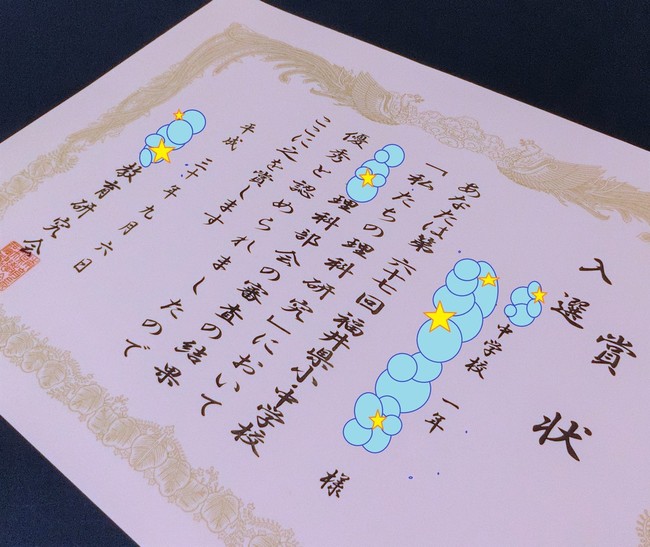 入選賞状
中学校 一年
様
あなたは第六十七回福井県小中学校
「私たちの理科研究」において
理科部会の審査の結果
優秀と認められましたので
ここに之を賞します
平成三十年九月六日
教育研究会